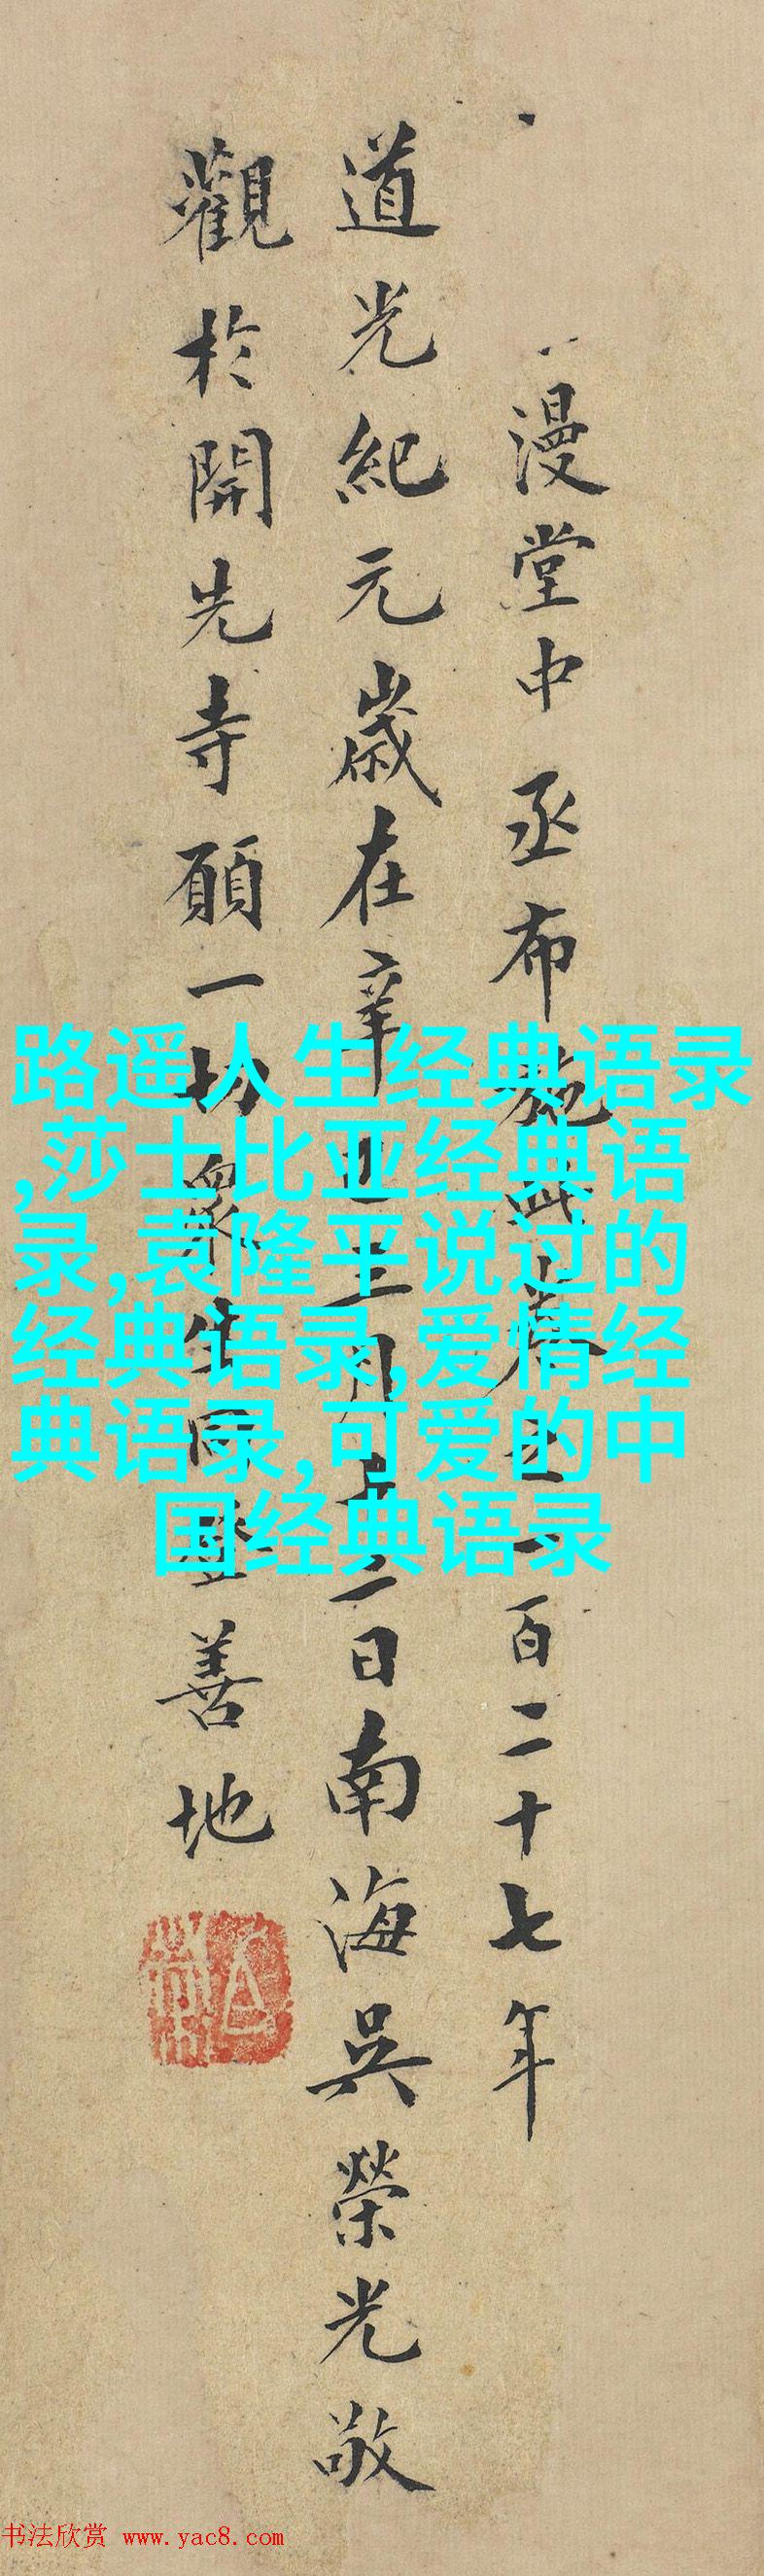 漫堂中丞布施此卷之一百二十七年
道光紀元歲在辛巳三月十二日南海吳榮光敬
觀於開先寺願一切眾生同登善地
路遥人生经典语录
,莎士比亚经典语
录,袁隆平说过的
经典语录,爱情经
典语录,可爱的中
国经典语录
书法欣赏 www.yac8.com